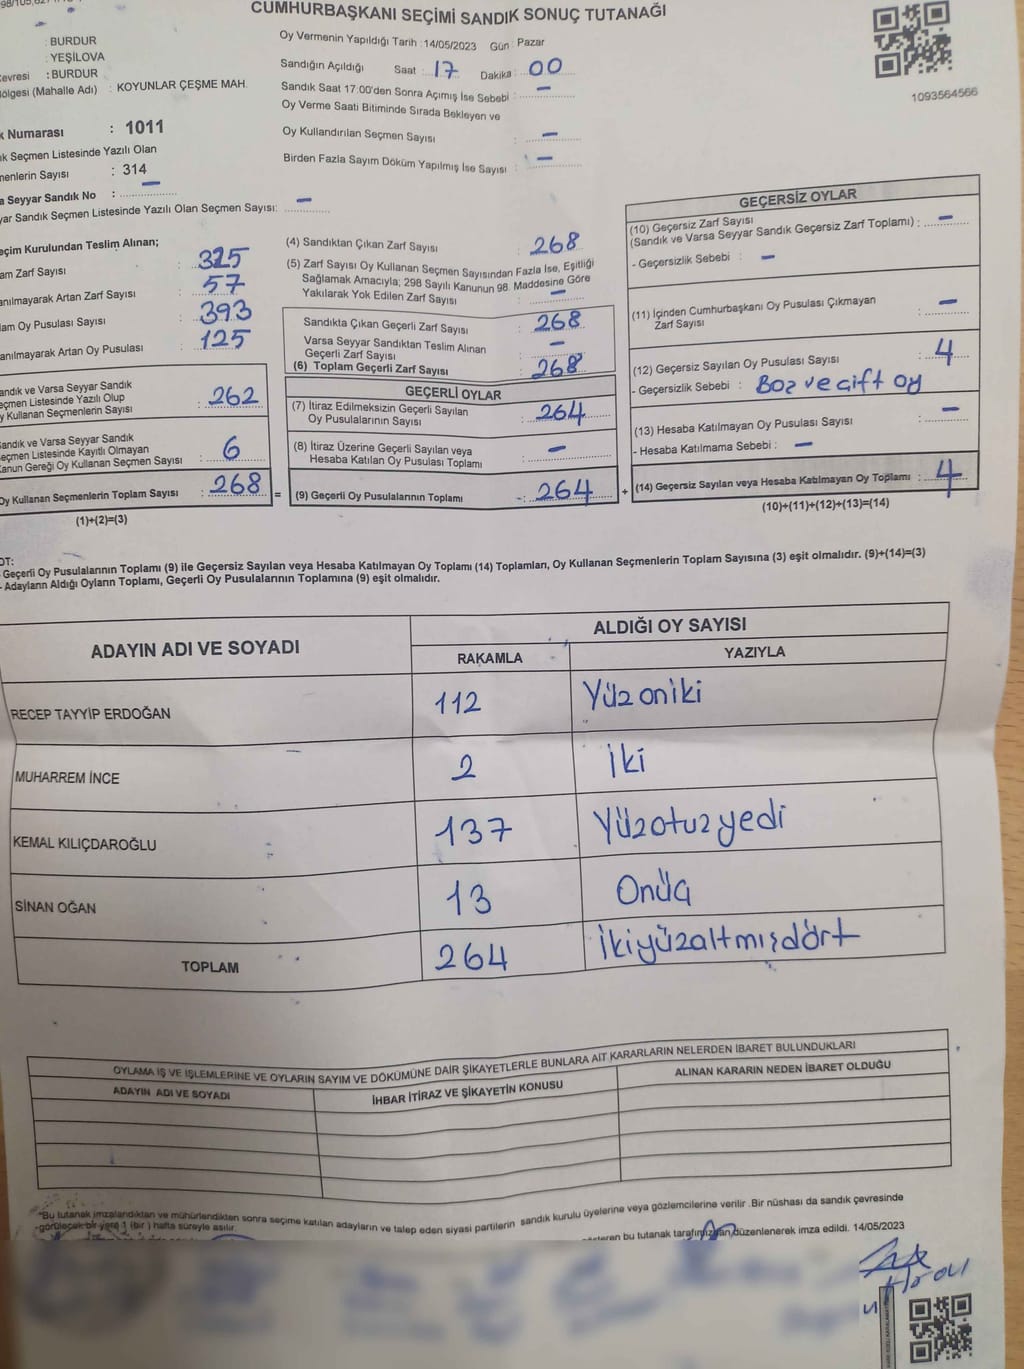 CUMHURBAŞKANI SEÇİMİ SANDIK SONUÇ TUTANAĞI
: BURDUR
: YEŞİLOVA
: BURDUR
(Mahalle Adı) : KOYUNLAR ÇEŞME MAH.
Numarası : 1011
Seçmen Listesinde Yazılı Olan
Sayısı : 314
Seyyar Sandık No : –
Sandık Seçmen Listesinde Yazılı Olan Seçmen Sayısı: –
Oy Vermenin Yapıldığı Tarih : 14/05/2023 Gün : Pazar
Sandığın Açıldığı Saat : 17 Dakika : 00
Sandık Saat 17:00'den Sonra Açımış İse Sebebi : –
Oy Verme Saati Bitiminde Sırada Bekleyen ve
Oy Kullandırılan Seçmen Sayısı : –
Birden Fazla Sayım Döküm Yapılmış İse Sayısı : –
1093564566
Seçim Kurulundan Teslim Alınan;
Zarf Sayısı : 325
Artan Zarf Sayısı : 57
Oy Pusulası Sayısı : 393
Artan Oy Pusulası : 125
Sandık ve Varsa Seyyar Sandık
Seçmen Listesinde Yazılı Olup
Oy Kullanan Seçmenlerin Sayısı : 262
Sandık ve Varsa Seyyar Sandık
Seçmen Listesinde Kayıtlı Olmayan
Kanun Gereği Oy Kullanan Seçmen Sayısı : 6
Oy Kullanan Seçmenlerin Toplam Sayısı : 268 =
(1)+(2)=(3)
(4) Sandıktan Çıkan Zarf Sayısı : 268
(5) Zarf Sayısı Oy Kullanan Seçmen Sayısından Fazla İse, Eşitliği
Sağlamak Amacıyla; 298 Sayılı Kanunun 98. Maddesine Göre
Yakılarak Yok Edilen Zarf Sayısı : –
Sandıkta Çıkan Geçerli Zarf Sayısı : 268
Varsa Seyyar Sandıktan Teslim Alınan
Geçerli Zarf Sayısı : –
(6) Toplam Geçerli Zarf Sayısı : 268
GEÇERLİ OYLAR
(7) İtiraz Edilmeksizin Geçerli Sayılan
Oy Pusulalarının Sayısı : 264
(8) İtiraz Üzerine Geçerli Sayılan veya
Hesaba Katılan Oy Pusulası Toplamı : –
(9) Geçerli Oy Pusulalarının Toplamı : 264 +
GEÇERSİZ OYLAR
(10) Geçersiz Zarf Sayısı
(Sandık ve Varsa Seyyar Sandık Geçersiz Zarf Toplamı) : –
- Geçersizlik Sebebi : –
(11) İçinden Cumhurbaşkanı Oy Pusulası Çıkmayan
Zarf Sayısı : –
(12) Geçersiz Sayılan Oy Pusulası Sayısı : 4
- Geçersizlik Sebebi : Boz ve çift oy
(13) Hesaba Katılmayan Oy Pusulası Sayısı : –
- Hesaba Katılmama Sebebi : –
(14) Geçersiz Sayılan veya Hesaba Katılmayan Oy Toplamı : 4
(10)+(11)+(12)+(13)=(14)
Geçerli Oy Pusulalarının Toplamı (9) ile Geçersiz Sayılan veya Hesaba Katılmayan Oy Toplamı (14) Toplamları, Oy Kullanan Seçmenlerin Toplam Sayısına (3) eşit olmalıdır. (9)+(14)=(3)
- Adayların Aldığı Oyların Toplamı, Geçerli Oy Pusulalarının Toplamına (9) eşit olmalıdır.
ADAYIN ADI VE SOYADI
ALDIĞI OY SAYISI
RAKAMLA YAZIYLA
RECEP TAYYİP ERDOĞAN 112 Yüzoniki
MUHARREM İNCE 2 İki
KEMAL KILIÇDAROĞLU 137 Yüzotuzyedi
SİNAN OĞAN 13 Onüç
TOPLAM 264 İkiyüzaltmışdört
OYLAMA İŞ VE İŞLEMLERİNE VE OYLARIN SAYIM VE DÖKÜMÜNE DAİR ŞİKAYETLERLE BUNLARA AİT KARARLARIN NELERDEN İBARET BULUNDUKLARI
ADAYIN ADI VE SOYADI İHBAR İTİRAZ VE ŞİKAYETİN KONUSU ALINAN KARARIN NEDEN İBARET OLDUĞU
*Bu tutanak imzalandıktan ve mühürlendikten sonra seçime katılan adayların ve talep eden siyasi partilerin sandık kurulu üyelerine veya gözlemcilerine verilir .Bir nüshası da sandık çevresinde
görülecek bir yere 1 (bir ) hafta süreyle asılır.
bu tutanak tarafımızdan düzenlenerek imza edildi. 14/05/2023